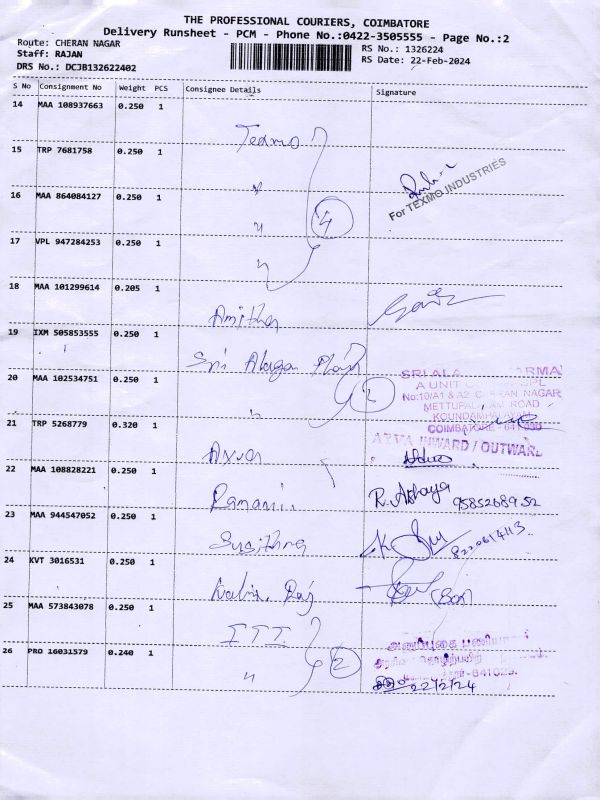 THE PROFESSIONAL COURIERS, COIMBATORE
Delivery Runsheet - PCM - Phone No.:0422-3505555 - Page No.:2
Route: CHERAN NAGAR
Staff: RAJAN
DRS No.: DCJB132622402
RS No.: 1326224
RS Date: 22-Feb-2024
S No Consignment No Weight PCS Consignee Details Signature
14 MAA 108937663 0.250 1 Texmo
15 TRP 7681758 0.250 1 "
For TEXMO INDUSTRIES
16 MAA 864084127 0.250 1 " 4
17 VPL 947284253 0.250 1 "
18 MAA 101299614 0.205 1 Amitha
19 IXM 505853555 0.250 1 Sri
20 MAA 102534751 0.250 1 " 2
A UNIT
No:10/A1 & A2, CHERAN NAGAR
ROAD
KOUNDAMPALAYAM
COIMBATORE
21 TRP 5268779 0.320 1
INWARD / OUTWARD
22 MAA 108828221 0.250 1 Ramani R. Akshaya 9585268952
23 MAA 944547052 0.250 1
24 KVT 3016531 0.250 1 Raj
25 MAA 573843078 0.250 1 ITI
26 PRO 16031579 0.240 1 " 2
22/2/24